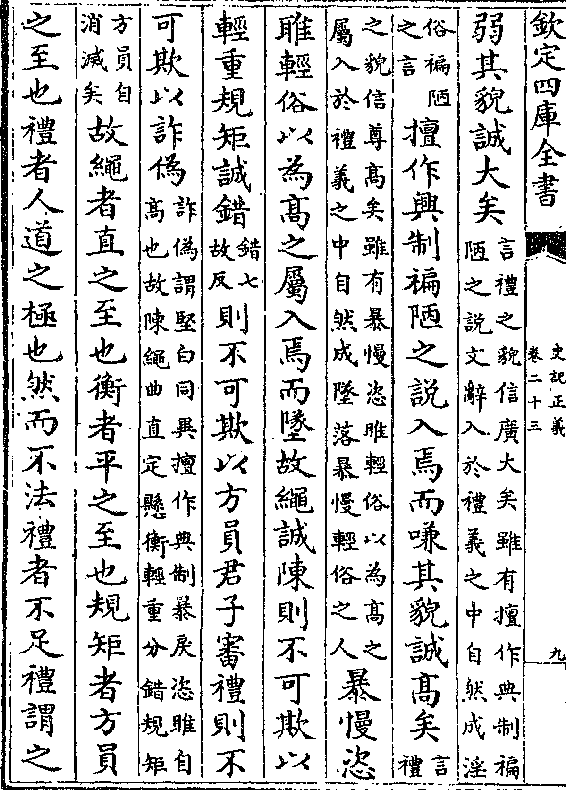 欽定四庫全書
史記正義
卷二十三
九
弱其貌誠大矣
言禮之貌信廣大矣雖有擅作典制褊
陋之說文辭入於禮義之中自然成淫
俗褊陋
之言
擅作興制褊陋之説入焉而嗛其貌誠髙矣
言
禮
之貌信尊髙矣雖有暴慢恣睢輕俗以為髙之
屬入於禮義之中自然成墜落暴慢輕俗之人
暴慢恣
睢輕俗以為髙之屬入焉而墜故繩誠陳則不可欺以
輕重規矩誠錯
錯七
故反
則不可欺以方員君子審禮則不
可欺以詐偽
詐偽謂堅白同異擅作典制暴戾恣睢自
髙也故陳繩曲直定懸衡輕重分錯規矩
方員自
消滅矣
故繩者直之至也衡者平之至也規矩者方員
之至也禮者人道之極也然而不法禮者不足禮謂之